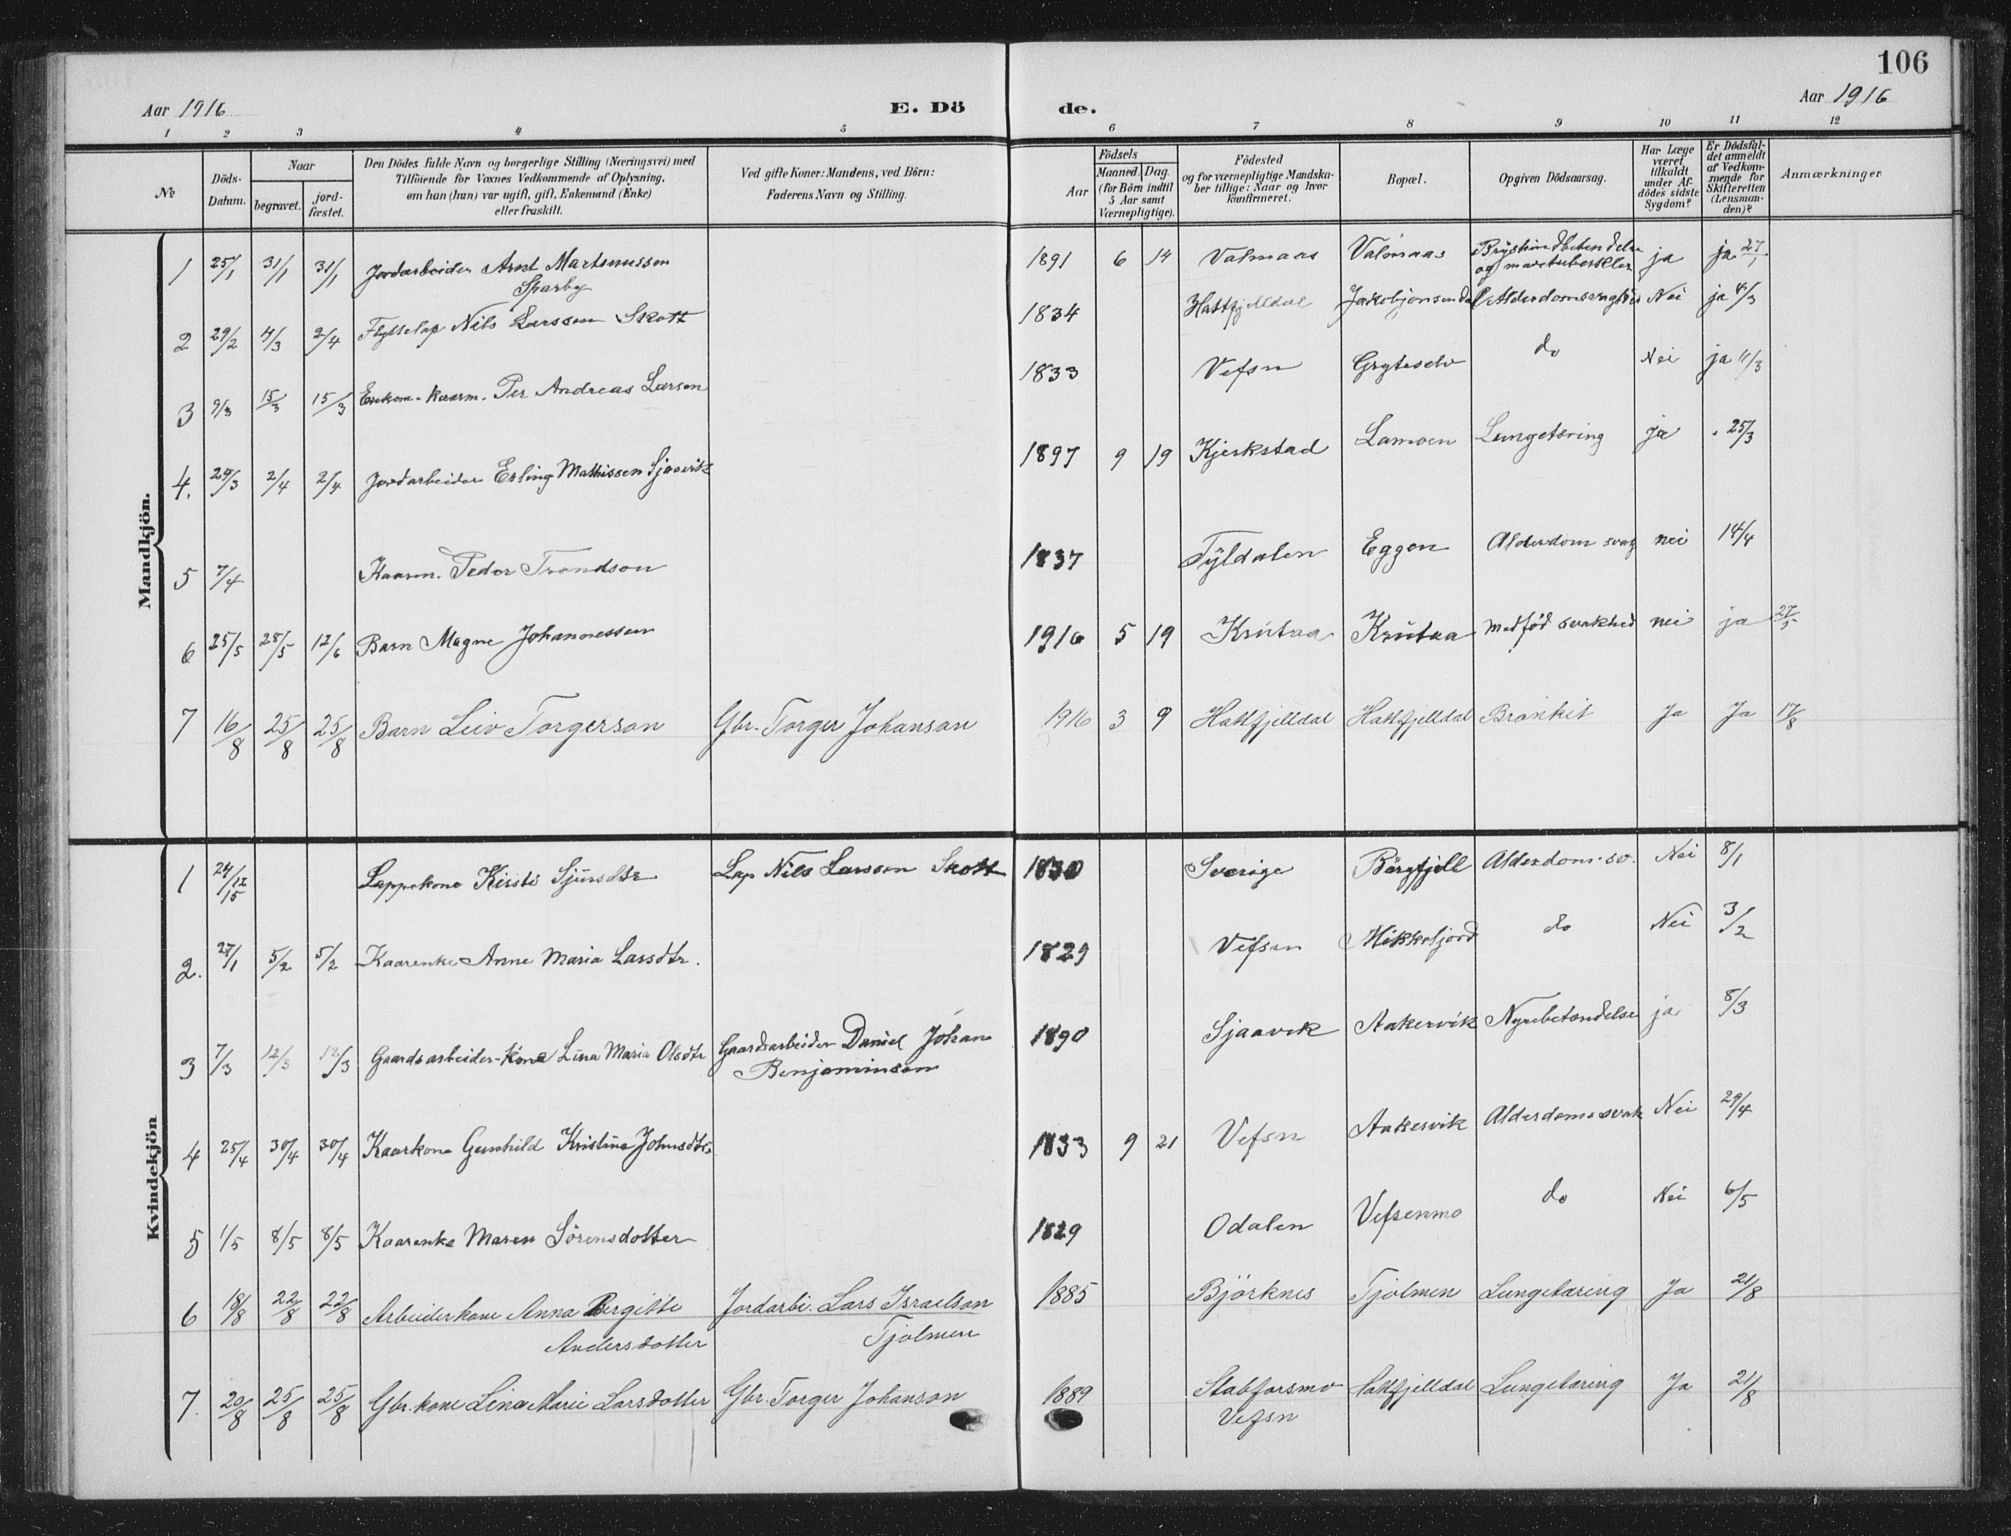 106
Aar 1916
E. Dö
de.
Aar 1916
1 2 3 4 5 6 7 8 9 10 11 12
№
Döds-
Datum.
Naar
begravet.
jord-
fæstet.
Den Dödes fulde Navn og borgerlige Stilling (Næringsvei) med
Tilföiende for Voxnes Vedkommende af Oplysning,
om han (hun) var ugift, gift, Enkemand (Enke)
eller fraskilt.
Ved gifte Koner: Mandens, ved Börn:
Faderens Navn og Stilling.
Födsels
Aar
Maaned. Dag.
(for Börn indtil
5 Aar samt
Værnepligtige).
Födested
og for værnepligtige Mandska-
ber tillige: Naar og hvor
konfirmeret.
Bopæl.
Opgiven Dödsaarsag.
Har Læge
været
tilkaldt
under Af-
dödes sidste
Sygdom?
Er Dödsfal-
det anmeldt
af Vedkom-
mende for
Skifteretten
(Lensman-
den)?
Anmærkninger
Mandkjön.
1 25/1 31/1 31/1 Jordarbeider Arnt Martinussen Sparby 1891 6 14 Valmaas Valmaas Brysthindebetendelse og ja ja 27/1
2 29/2 4/3 2/4 Flyttelap Nils Larsson Skott 1834 Hattfjelldal Nei ja 4/3
3 9/3 15/3 15/3 Enkem. kaarm. Per Andreas Larsen 1833 Vefsn Gryteselv do Nei ja 11/3
4. 29/3 2/4 2/4 Jordarbeider Erling Mathissen Sjaavik 1897 9 19 Kjerkstad Lamoen Lungetæring ja 25/3
5 7/4 Kaarm. Peder Trondson 1837 Tyldalen Eggen Alderdom svag nei 14/4
6 25/5 28/5 12/6 Barn Magne Johannessen 1916 5 19 Krutaa Krutaa medfød svakhed nei ja 27/5
7 16/8 25/8 25/8 Barn Leiv Torgerson Gbr. Torger Johanson 1916 3 9 Hattfjelldal Hattfjelldal Bronkit Ja Ja 17/8
Kvindekjön
1 24/12 15 Lappekone Kirsti Sjursdtr Lap Nils Larsson Skott 1830 Sverige Børgfjell Alderdom-sv. Nei 8/1
2. 27/1 5/2 5/2 Kaarenke Anne Maria Larsdtr. 1829 Vefsen do Nei 3/2
3 7/3 12/3 12/3 Gaardsarbeider-Kone Lina Maria Olsdtr Gaardsarbeider Daniel Johan Benjaminsen 1890 Sjaavik Aakervik Nyrebetændelse ja 8/3
4 25/4 30/4 30/4 Kaarkone Gunhild Kristine Johnsdtr. 1833 9 21 Vefsn Aakervik Alderdomssvak Nei 29/4
5 1/5 8/5 8/5 Kaarenke Maren Sörensdotter 1829 Odalen Vefsenmo do Nei 6/5
6 18/8 22/8 22/8 Arbeiderkone Anna Bergitte Andersdotter Jordarbi. Lars Israelson Tjolmen 1885 Björknes Tjolmen Lungetæring Ja 21/8
7. 20/8 25/8 25/8 Gbr. kone Lina Marie Larsdotter Gbr. Torger Johanson 1889 Stabforsmo Vefsn Hattfjelldal Lungetæring Ja 21/8